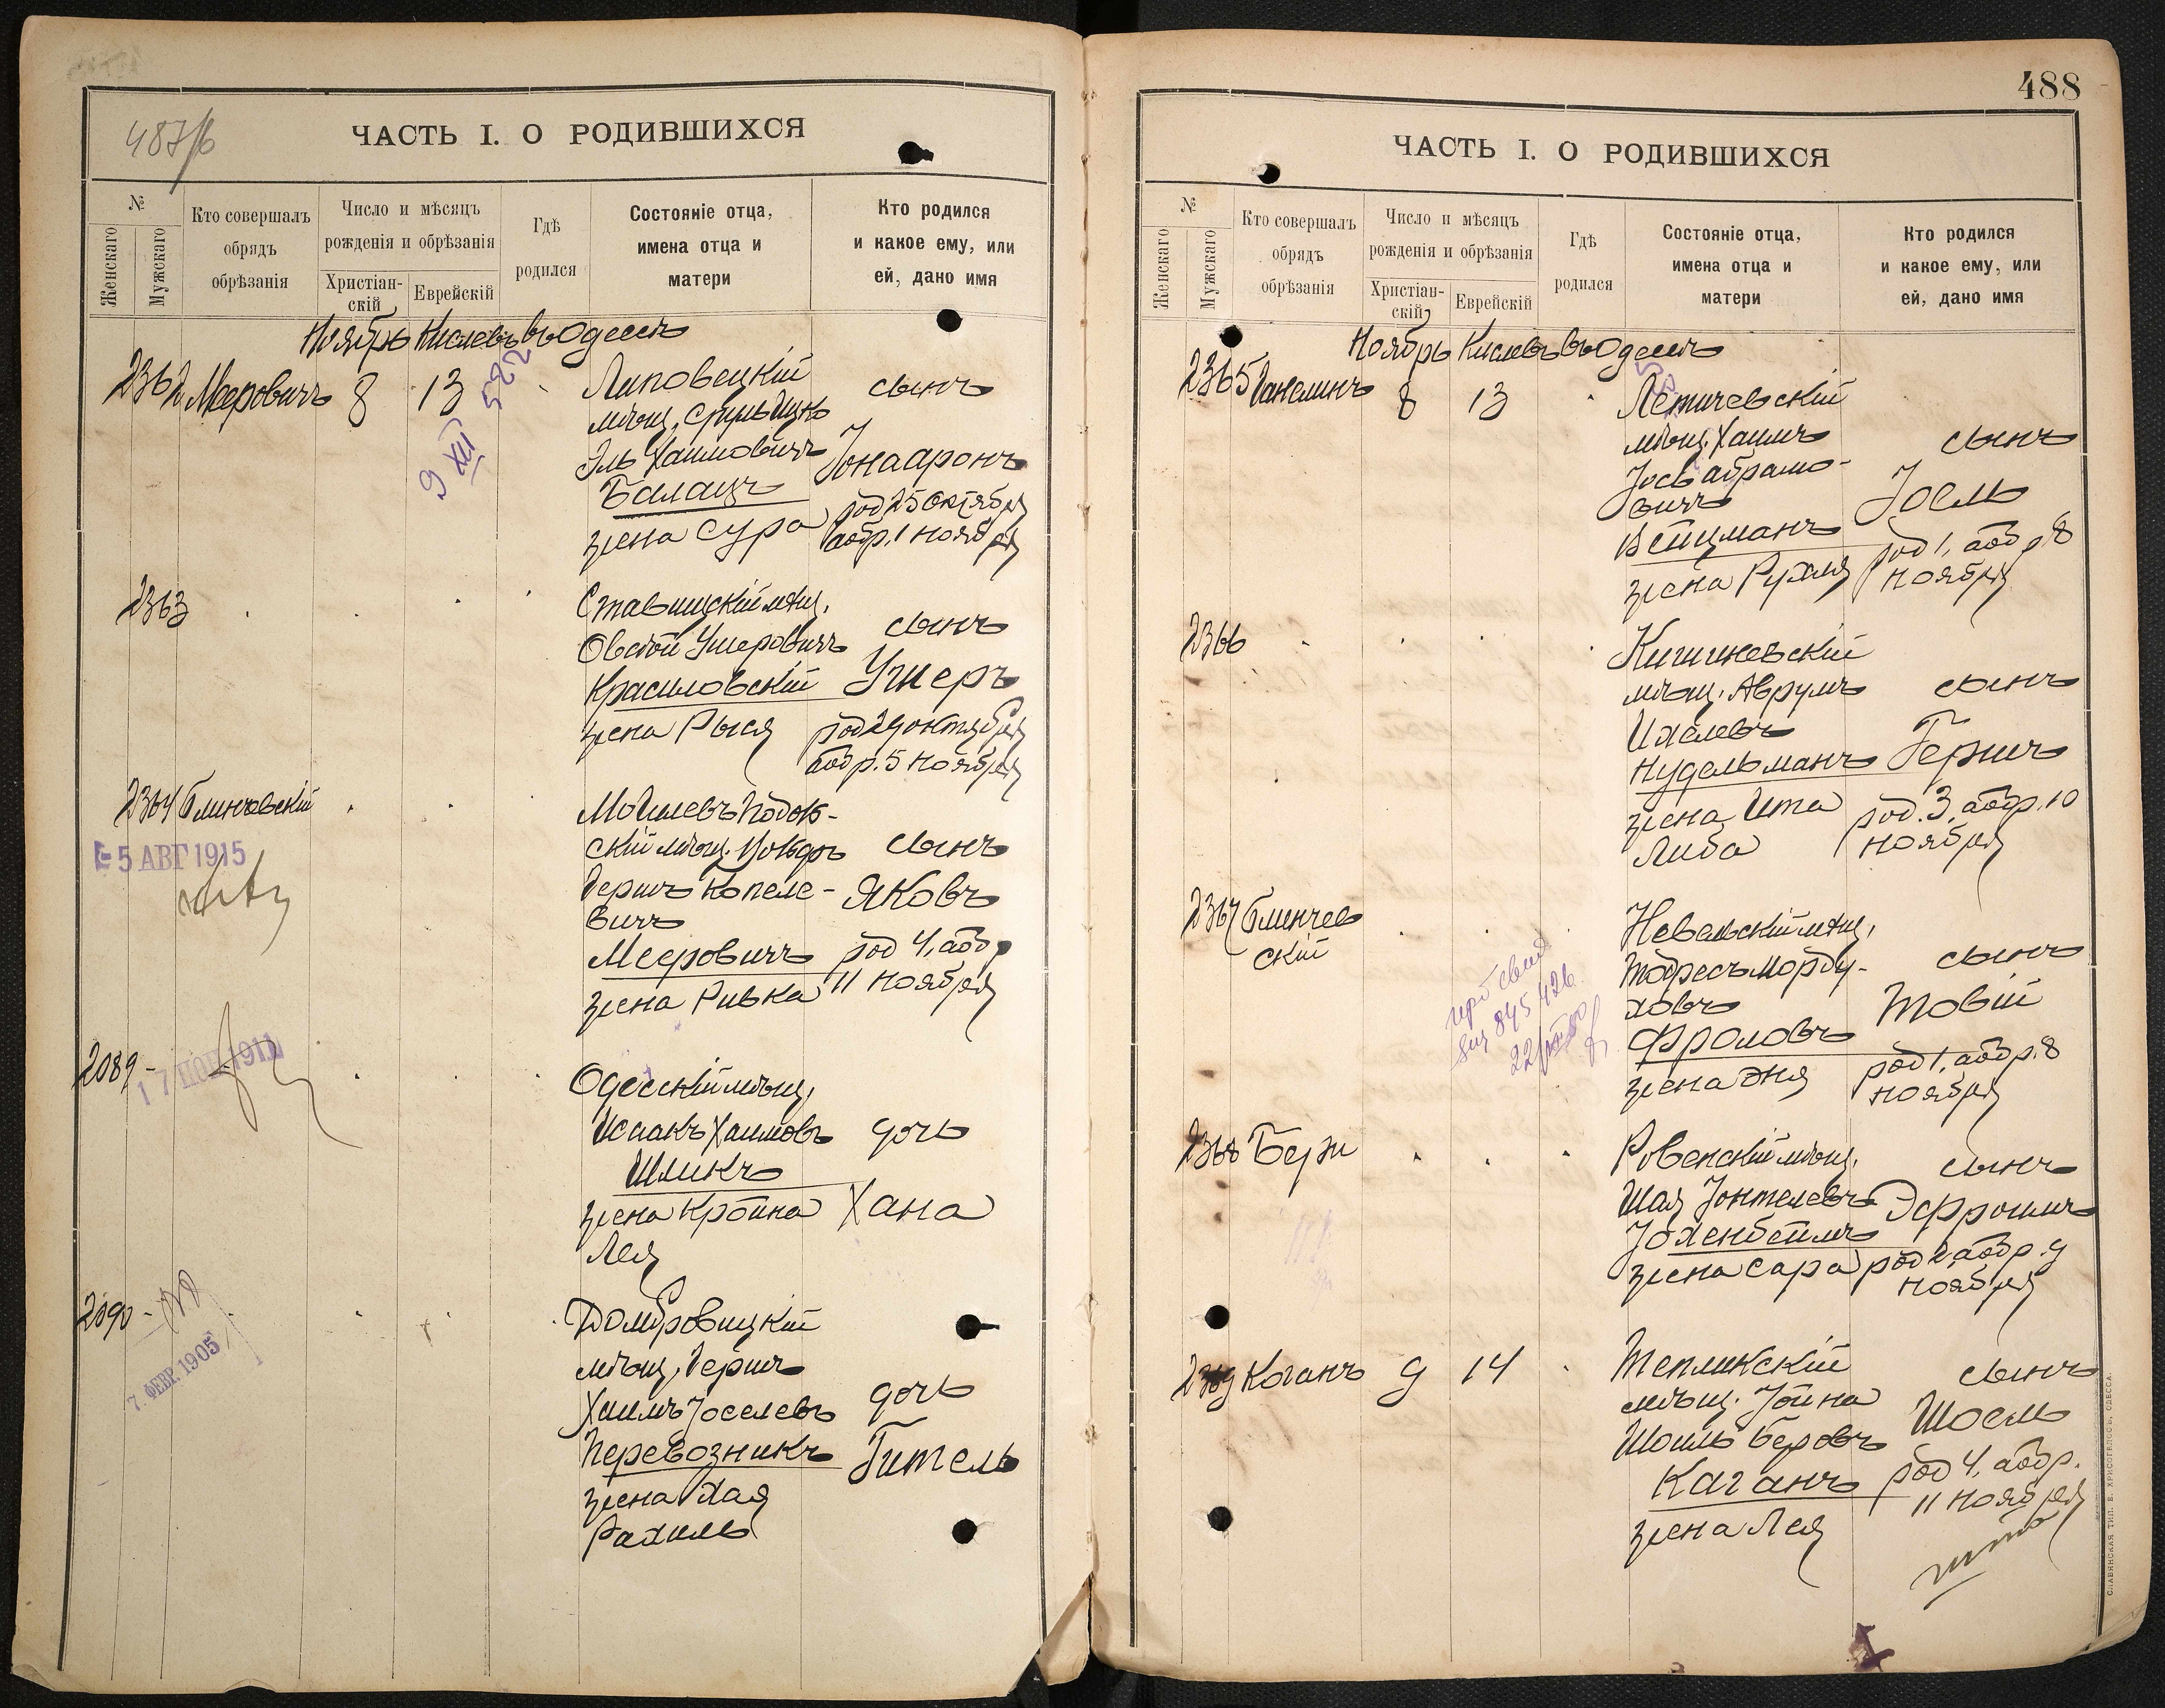 487/б
ЧАСТЬ I. О РОДИВШИХСЯ
№
Женскаго
Мужскаго
Кто совершалъ
обрядъ
обрѣзанія
Число и мѣсяцъ
рожденія и обрѣзанія
Христіан-
скій
Еврейскій
Гдѣ
родился
Состояніе отца,
имена отца и
матери
Кто родился
и какое ему, или
ей, дано имя
Ноябрь Кислевъ въ Одессѣ
2362 Мееровичъ 8 13
9 XII 522
Липовецкій
мѣщ. Сруль Ицко
Эль Хаимовичъ
Балацъ
жена Сура
сынъ
Іона Аронъ
род 25 октября
аобр. 1 ноября
2363
Ставищскій мѣщ.
Овсѣй Ушеровичъ
Красиловскій
жена Рыся
сынъ
Ушеръ
род 29 октября
аобр. 5 ноября
2364 Блинчевскій
5 АВГ 1915
Могилевъ Подол-
скій мѣщ.
Гершъ Копеле-
вичъ
Мееровичъ
жена Ривка
сынъ
Яковъ
род 4, аобр
11 ноября
2089 -
17 1911
Одесскій мѣщ.
Исаакъ Хаимовъ
Шликъ
жена Кройна
Лея
дочь
Хана
2090 -
7. ФЕВР. 1905
Домбровицкій
мѣщ. Гершъ
Хаимъ Іоселевъ
Перевозникъ
жена Хая
Рахиль
дочь
Гитель
488
ЧАСТЬ I. О РОДИВШИХСЯ
№
Женскаго
Мужскаго
Кто совершалъ
обрядъ
обрѣзанія
Число и мѣсяцъ
рожденія и обрѣзанія
Христіан-
скій
Еврейскій
Гдѣ
родился
Состояніе отца,
имена отца и
матери
Кто родился
и какое ему, или
ей, дано имя
Ноябрь Кислевъ въ Одессѣ
2365 Ганелинъ 8 13
Летичевскій
мѣщ. Хаимъ
Іось Абрамо-
вичъ
Вейцманъ
жена Рухля
сынъ
Іоель
род 1, аобр 8
ноября
2366
Кишиневскій
мѣщ. Аврумъ
Ихелевъ
Нудельманъ
жена Ита
Либа
сынъ
Гершъ
род. 3, аобр. 10
ноября
2367 Блинчев
скій
845426
Невельскій мѣщ.
Тодресъ Морду-
ховъ
Фроловъ
жена Эня
сынъ
Товій
род 1, аобр. 8
ноября
2368 Берж
Ровенскій мѣщ.
Шая Іонтелевъ
Іохенбеймъ
жена Сара
сынъ
Эфроимъ
род 2, аобр. 9
ноября
2369 Коганъ 9 14
Тепликскій
мѣщ. Іойна
Шоиль Беровъ
Каганъ
жена Лея
сынъ
Шоель
род 4, аобр.
11 ноября
СЛАВЯНСКАЯ ТИП. Е. ХРИСОГЕЛОСЪ, ОДЕССА.